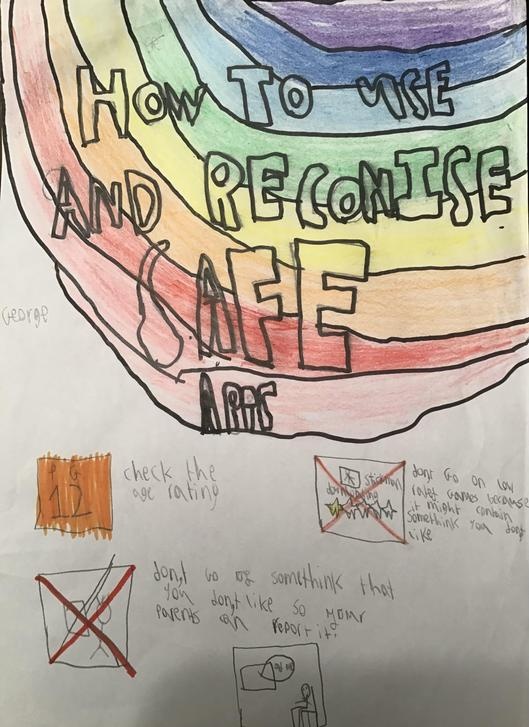 HOW TO USE
AND RECONISE
SAFE
APPS
George
PG
12
check the
age rating
stickman
dont Go on low
rated games because
it might contain
somethink you dont
like
dont Go of somethink that
you dont like so your
parents can report it!